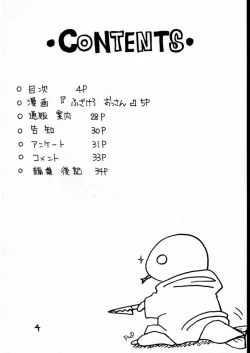 •CONTENTS•
○ 目次 4P
○ 漫画『ふざけろ おっさん』5P
○ 通販 案内 28P
○ 告知 30P
○ アンケート 31P
○ コメント 33P
○ 編集 後記 34P
4